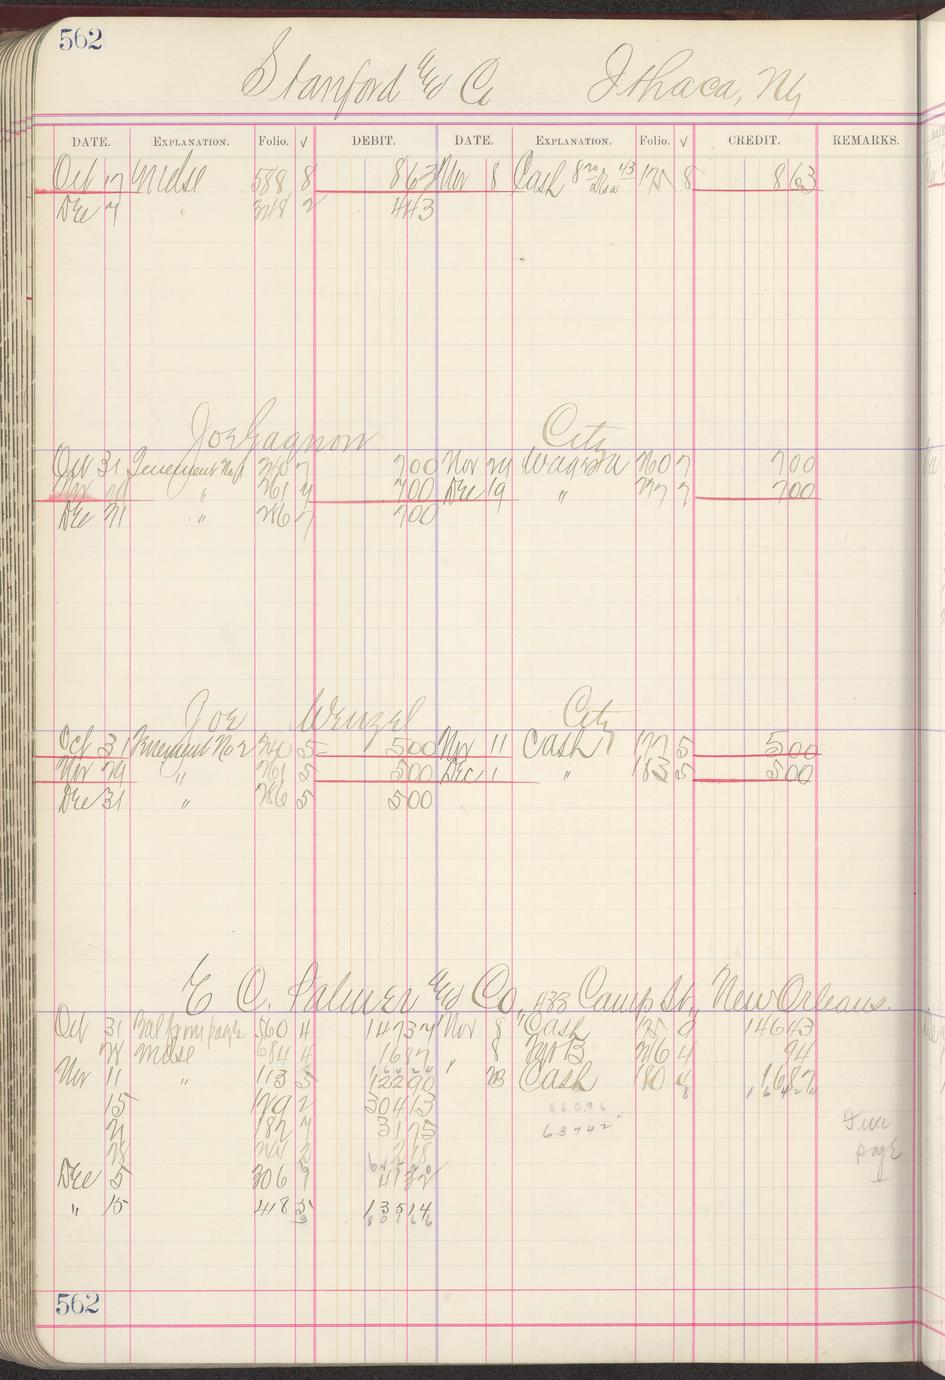 562
Stanford and Co Ithaca, NY
DATE. EXPLANATION. Folio. √ DEBIT. DATE. EXPLANATION. Folio. √ CREDIT. REMARKS.
Oct 17 Mdse 588 8 863 Nov 8 Cash 175 8 863
Dec 7 " 348 2 443
Joe Gagnon City
Oct 31 Tenement No 1 240 7 700 Nov 24 260 7 700
Nov " 261 7 700 Dec 19 " 177 7 700
Dec 31 " 286 7 700
Joe Wenzel City
Oct 31 Tenement No 2 240 5 500 Nov 11 Cash 177 5 500
Nov 29 " 261 5 500 Dec 1 " 183 5 500
Dec 31 " 286 5 500
E C. Palmer and Co., 433 Camp St., New Orleans.
Oct 31 Bal from page 560 4 14737 Nov 8 Cash 175 14643
28 Mdse 684 4 1687 " 8 246 4 94
Nov 11 " 113 5 12290 23 Cash 180 4 1687
15 179 2 30413
86096
21 187 7 3175
63742
28 2 218
page
Dec 5 306 9 4132
" 15 418 5 13514
562